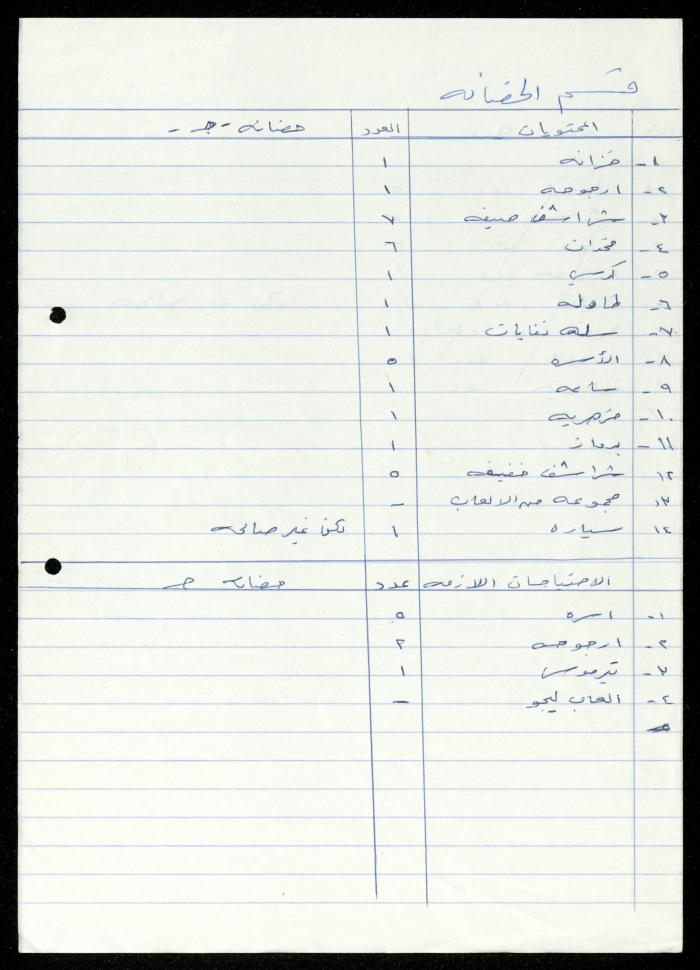 قسم الحضانه
المحتويات العدد حضانه - ج -
١- خزانه ١
٢- ارجوحه ١
٣- شراشف صيفه ٧
٤- مخدات ٦
٥- كرسي ١
٦- طاوله ١
٧- سله نفايات ١
٨- الأسره ٥
٩- ساعه ١
١٠- مزهريه ١
١١- ١
١٢ شراشف خفيفه ٥
١٣ مجموعه من الالعاب -
١٤ سياره ١ لكن غير صالحه
الاحتياجات اللازمه عدد حضانه ج
١- اسره ٥
٢- ارجوحه ٢
٣- تيرموس ١
٤- العاب ليجو -